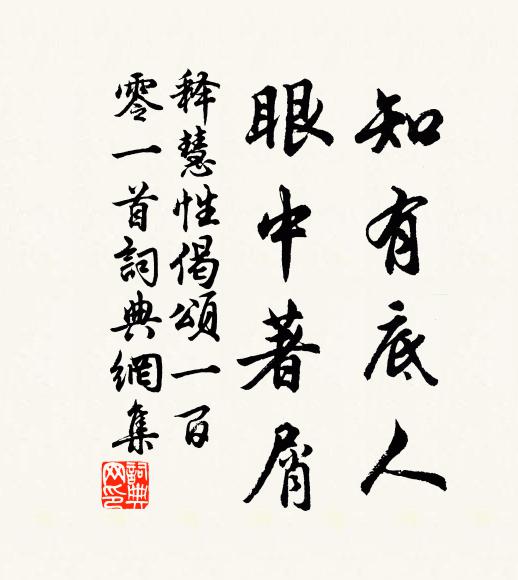 知有底人
眼中著屑
释慧性偈頌一百
零一首詞典網集
詞典
网印